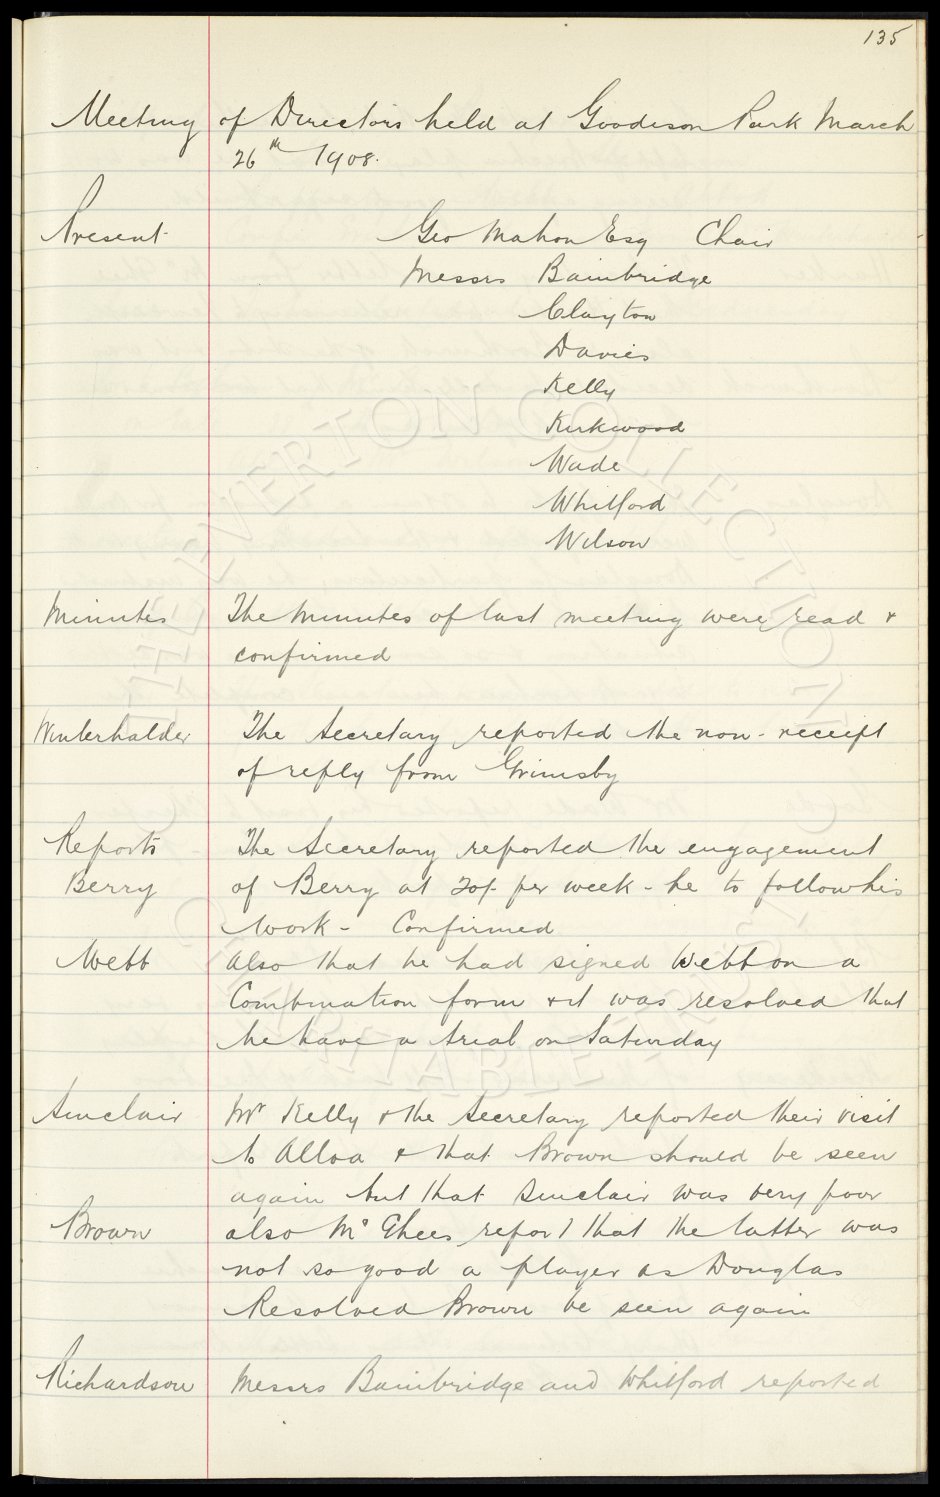 135
Meeting of Directors held at Goodison Park March
26th 1908.
Present Geo Mahon Esq Chair
Messrs Bainbridge
Clayton
Davies
Kelly
Kirkwood
Wade
Whitford
Wilson
Minutes The Minutes of last meeting were read &
confirmed
Winterhalder The Secretary reported the non-receipt
of reply from Grimsby
Reports The Secretary reported the engagement
Berry of Berry at 20/- per week - he to follow his
work - Confirmed
Webb Also that he had signed Webb on a
Combination form & it was resolved that
he have a trial on Saturday
Sinclair Mr Kelly & the Secretary reported their visit
to Alloa & that Brown should be seen
again but that Sinclair was very poor
Brown also McGhees report that the latter was
not so good a player as Douglas
Resolved Brown be seen again
Richardson Messrs Bainbridge and Whitford reported
THE EVERTON COLLECTION
CHARITABLE TRUST